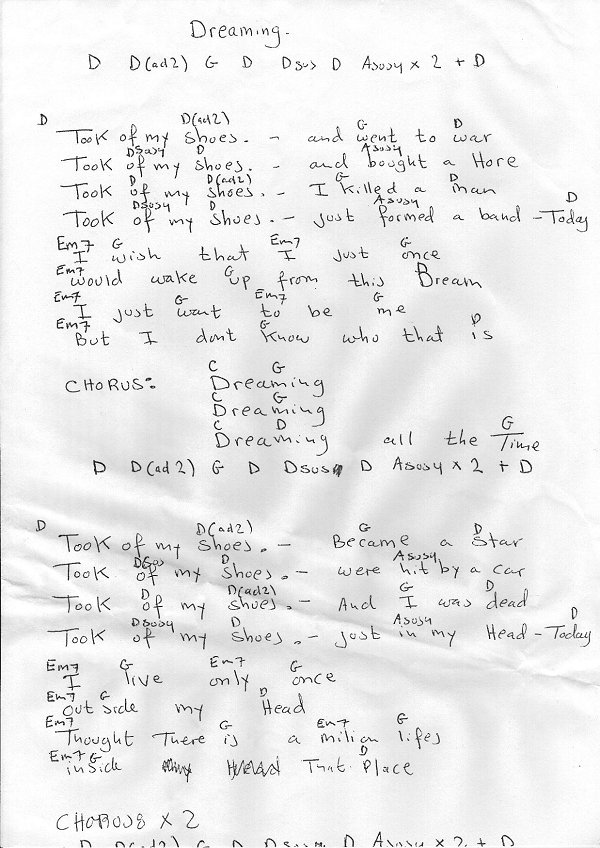 Dreaming.
D D(ad2) G D Dsus D Asus4 x 2 + D
D D(ad2) G D
Took of my shoes. - and went to war
Dsus4 D Asus4
Took of my shoes. - and bought a Hore
D D(ad2) G D
Took of my shoes. - I killed a man
Dsus4 D Asus4 D
Took of my shoes. - just formed a band - Today
Em7 G Em7 G
I wish that I just once
Em7 G D
would wake up from this Dream
Em7 G Em7 G
I just want to be me
Em7 G D
But I dont know who that is
C G
CHORUS: Dreaming
C G
Dreaming
C D G
Dreaming all the Time
D D(ad2) G D Dsus4 D Asus4 x 2 + D
D D(ad2) G D
Took of my shoes. - Became a star
Dsus D Asus4
Took of my shoes. - were hit by a car
D D(ad2) G D
Took of my shoes. - And I was dead
Dsus4 D Asus4 D
Took of my shoes. - just in my Head - Today
Em7 G Em7 G
I live only once
Em7 G D
out side my Head
Em7 G Em7 G
Thought There is a milion lifes
Em7 G D
inside That Place
CHORUS x 2
D D(ad2) G D Dsus D Asus4 x 2 + D